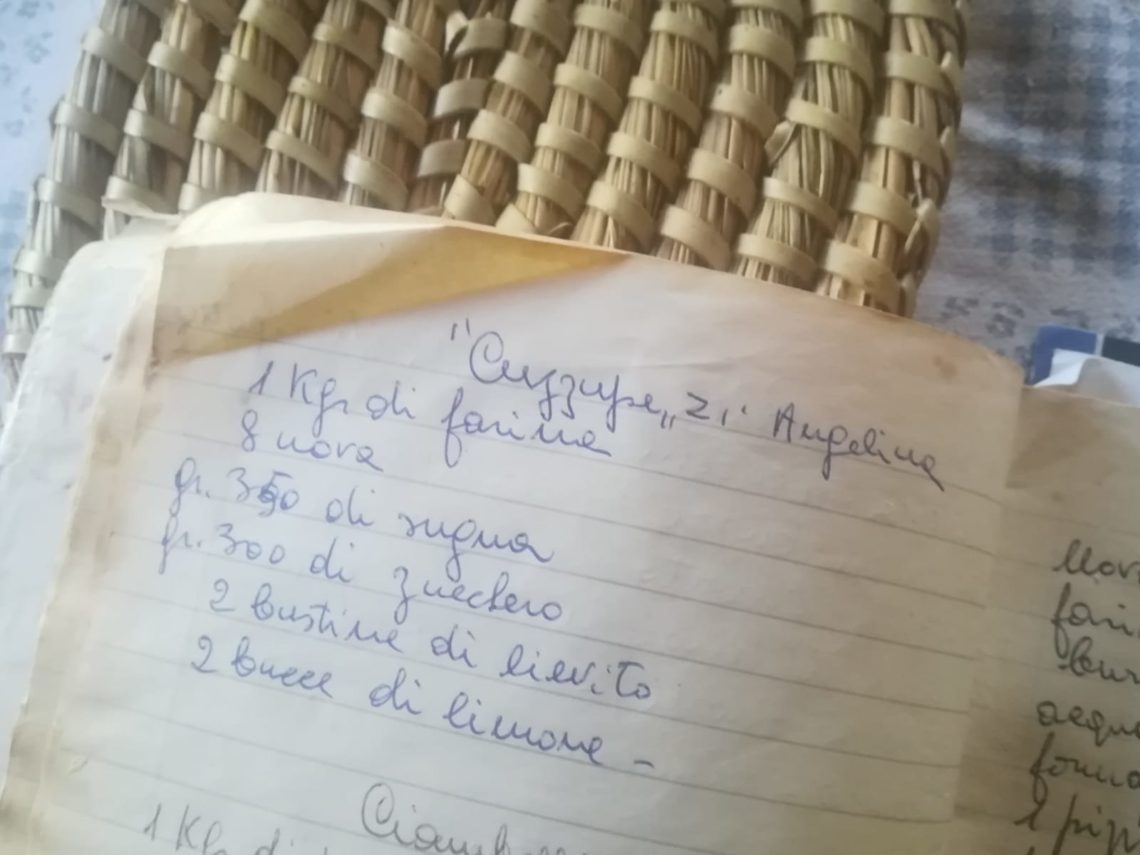 "Cuzzupe„ Zi' Angelina
1 Kgr di farina
8 uova
gr. 350 di sugna
gr. 300 di zucchero
2 bustine di lievito
2 bucce di limone -
1 Kg di
farin
acqua
1